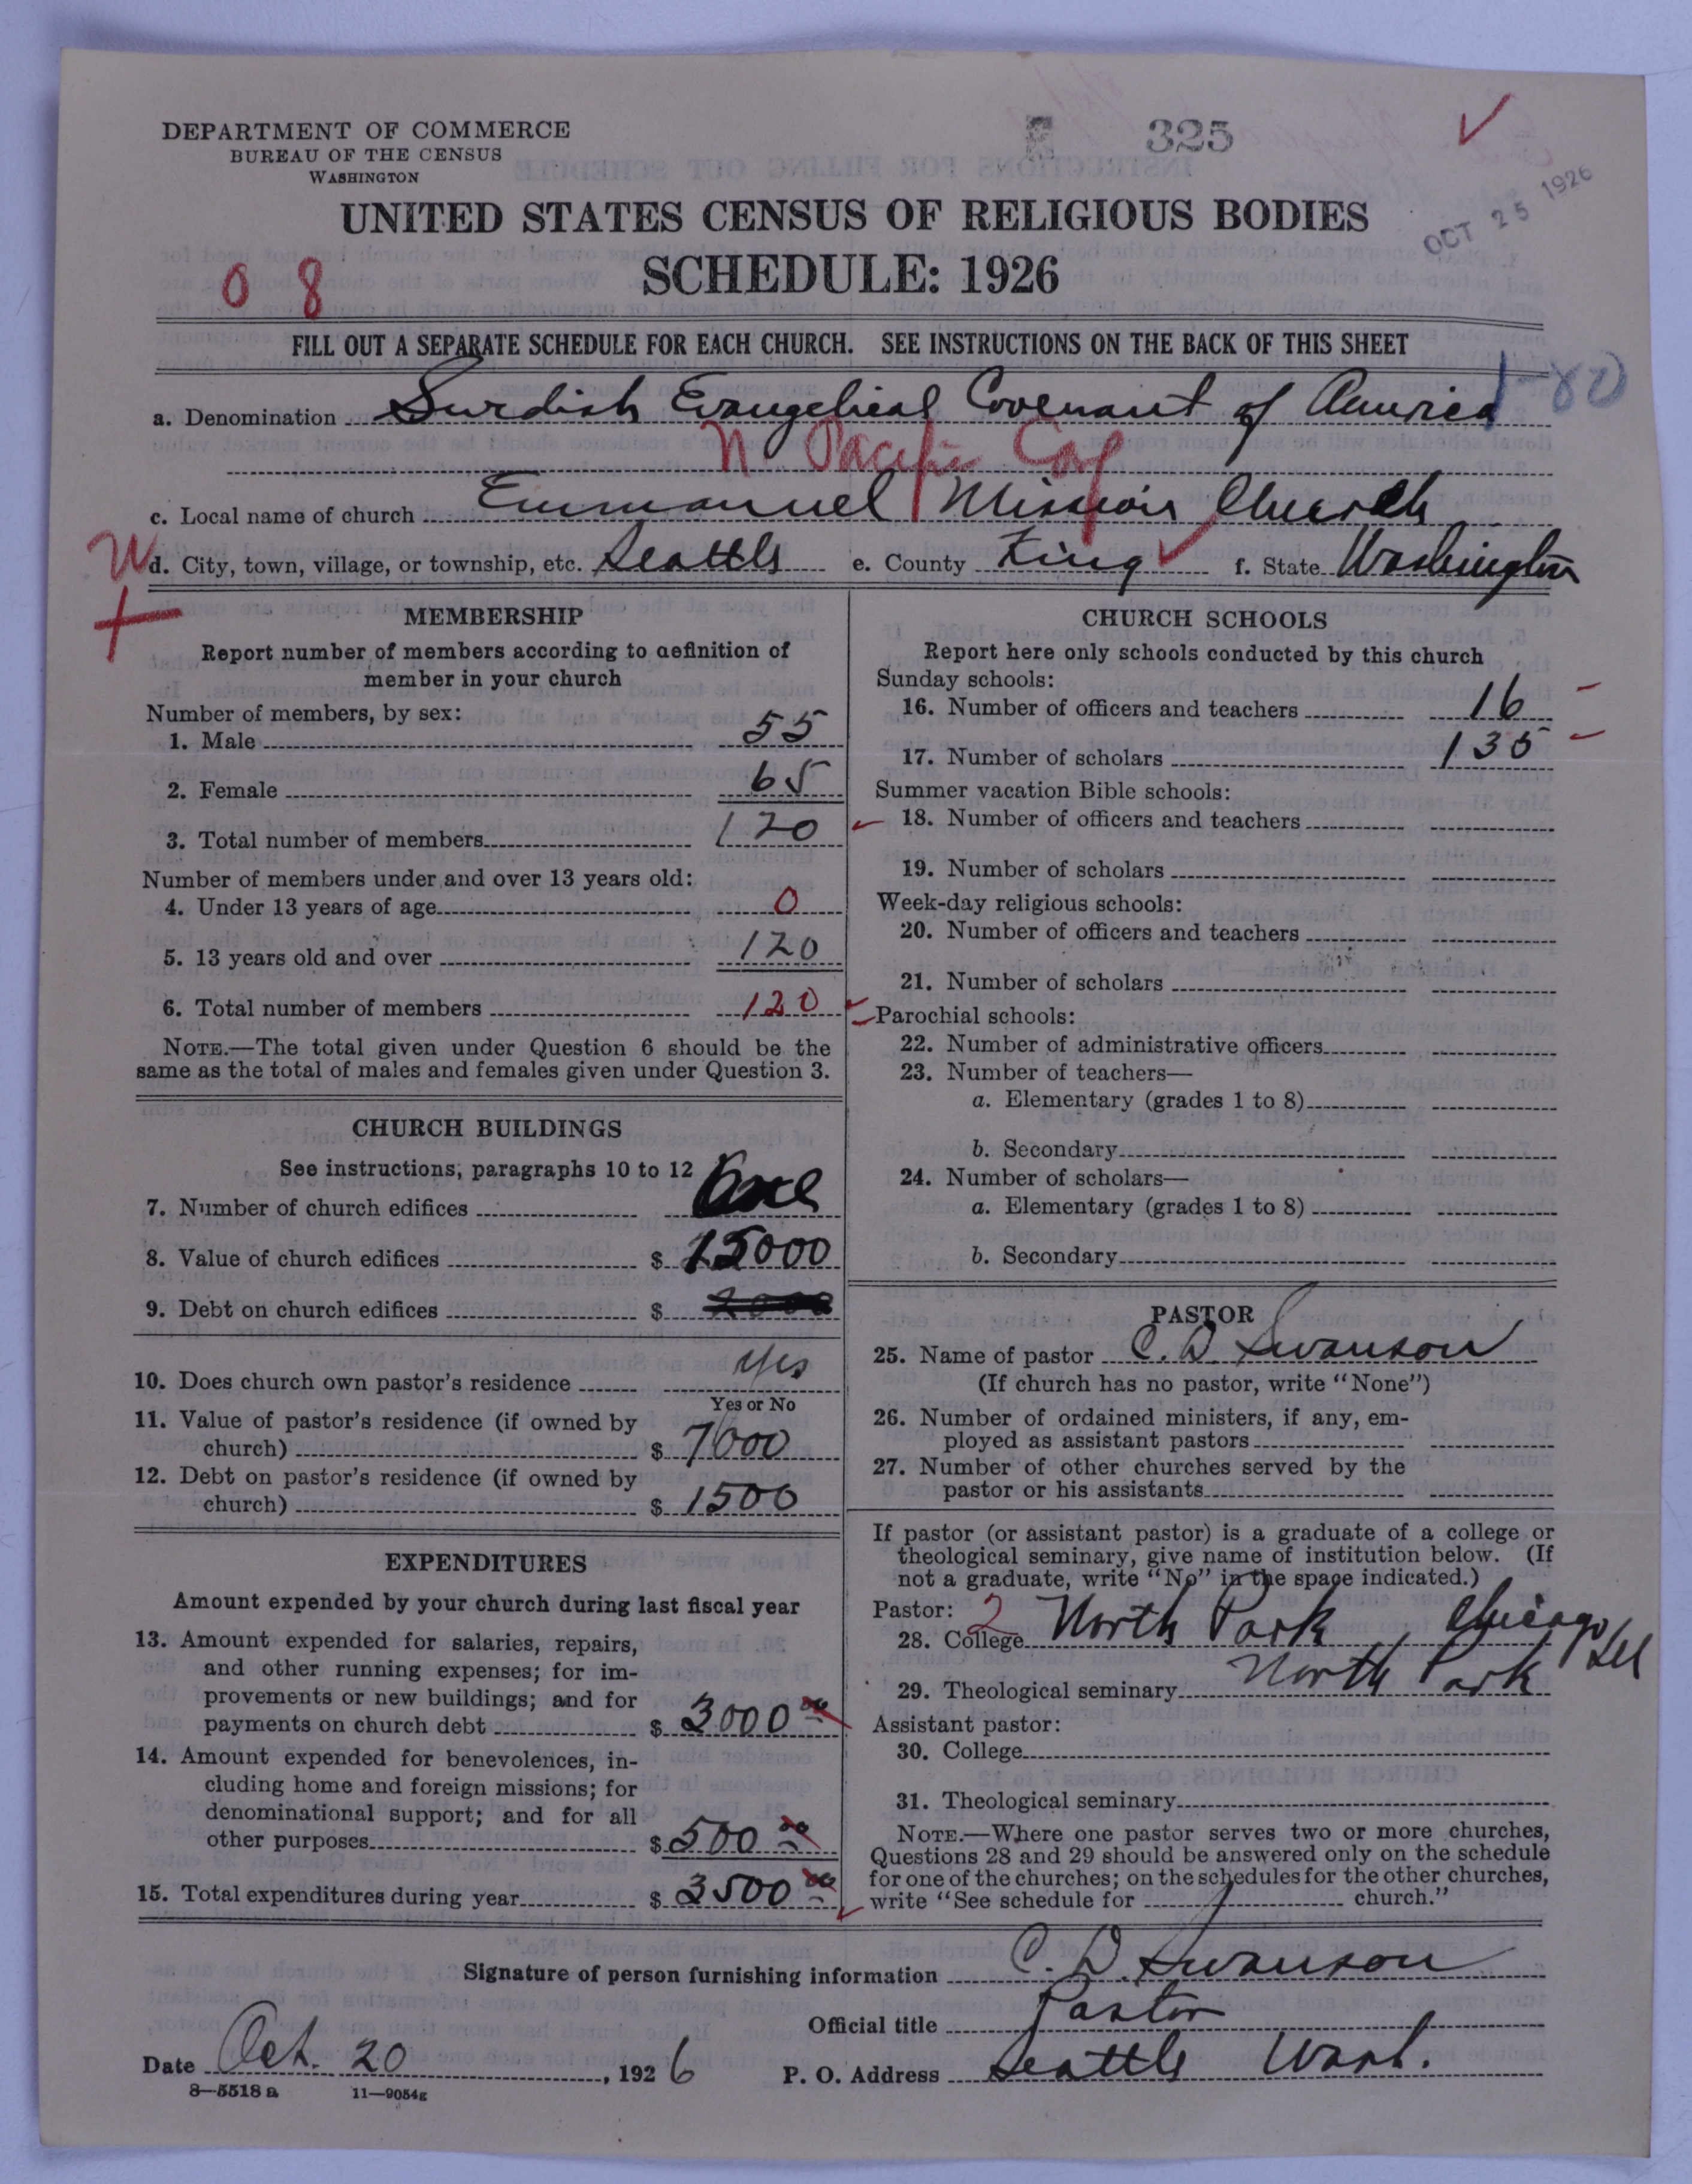 DEPARTMENT OF COMMERCE
BUREAU OF THE CENSUS
WASHINGTON
325
OCT 25 1926
UNITED STATES CENSUS OF RELIGIOUS BODIES
SCHEDULE: 1926
0 8
FILL OUT A SEPARATE SCHEDULE FOR EACH CHURCH. SEE INSTRUCTIONS ON THE BACK OF THIS SHEET
1-80
a. Denomination Swedish Evangelical Covenant of America
N. Pacific
c. Local name of church Emmanuel Mission Church
W d. City, town, village, or township, etc. Seattle e. County King f. State Washington
MEMBERSHIP
Report number of members according to definition of
member in your church
Number of members, by sex:
1. Male 55
2. Female 65
3. Total number of members 120
Number of members under and over 13 years old:
4. Under 13 years of age 0
5. 13 years old and over 120
6. Total number of members 120
NOTE.—The total given under Question 6 should be the
same as the total of males and females given under Question 3.
CHURCH BUILDINGS
See instructions, paragraphs 10 to 12
7. Number of church edifices One
8. Value of church edifices $ 15000
9. Debt on church edifices $ 2000
10. Does church own pastor's residence Yes
Yes or No
11. Value of pastor's residence (if owned by
church) $ 7000
12. Debt on pastor's residence (if owned by
church) $ 1500
EXPENDITURES
Amount expended by your church during last fiscal year
13. Amount expended for salaries, repairs,
and other running expenses; for im-
provements or new buildings; and for
payments on church debt $ 3000 00
14. Amount expended for benevolences, in-
cluding home and foreign missions; for
denominational support; and for all
other purposes $ 500 00
15. Total expenditures during year $ 3500 00
CHURCH SCHOOLS
Report here only schools conducted by this church
Sunday schools:
16. Number of officers and teachers 16
17. Number of scholars 135
Summer vacation Bible schools:
18. Number of officers and teachers
19. Number of scholars
Week-day religious schools:
20. Number of officers and teachers
21. Number of scholars
Parochial schools:
22. Number of administrative officers
23. Number of teachers—
a. Elementary (grades 1 to 8)
b. Secondary
24. Number of scholars—
a. Elementary (grades 1 to 8)
b. Secondary
PASTOR
25. Name of pastor C. D. Swanson
(If church has no pastor, write "None")
26. Number of ordained ministers, if any, em-
ployed as assistant pastors
27. Number of other churches served by the
pastor or his assistants
If pastor (or assistant pastor) is a graduate of a college or
theological seminary, give name of institution below. (If
not a graduate, write "No" in the space indicated.)
Pastor: 2
28. College North Park Chicago Ill
29. Theological seminary North Park
Assistant pastor:
30. College
31. Theological seminary
NOTE.—Where one pastor serves two or more churches,
Questions 28 and 29 should be answered only on the schedule
for one of the churches; on the schedules for the other churches,
write "See schedule for church."
Signature of person furnishing information C. D. Swanson
Official title Pastor
Date Oct. 20, 1926 P. O. Address Seattle Wash.
8—5518 a 11—9054g